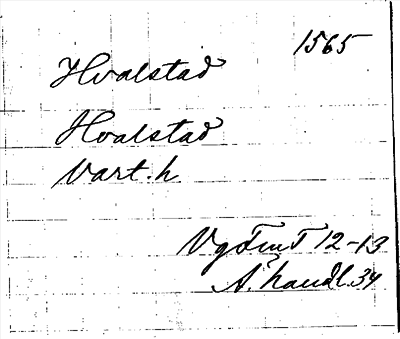 1565
Hvalstad
Hvalstad
Vart. h
Vg Fmt 12-13
Ä. handl. 34